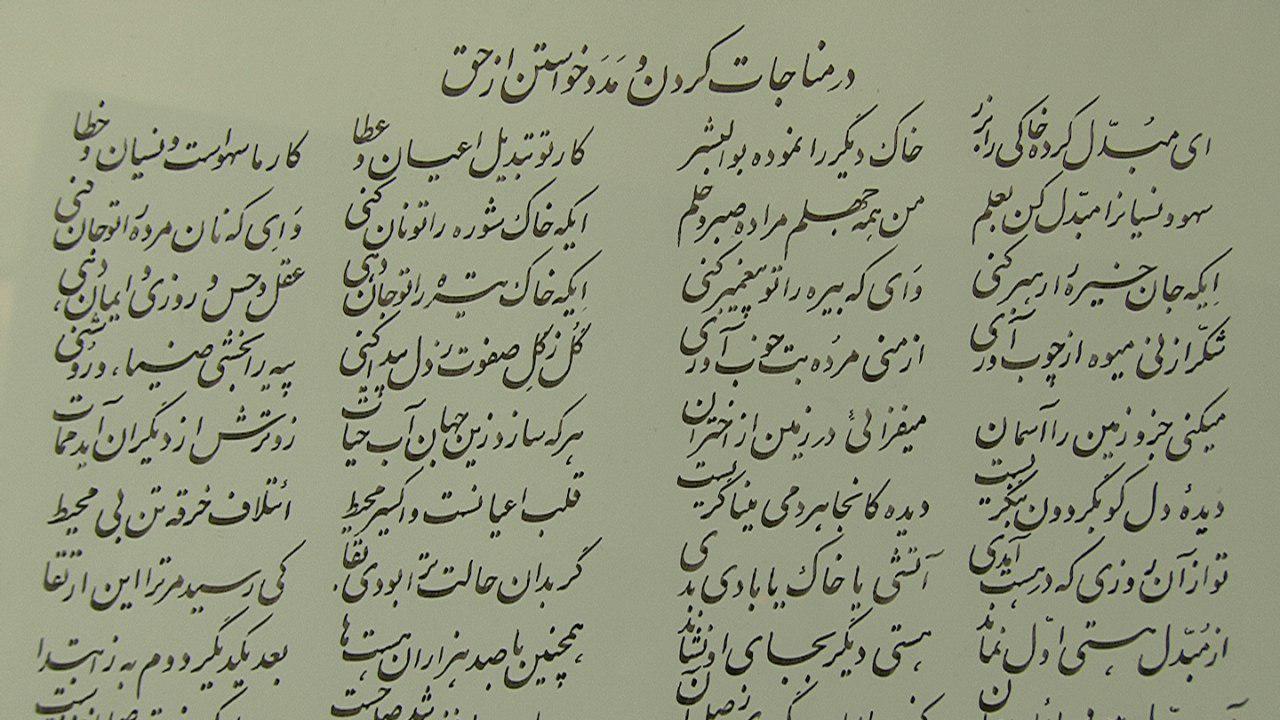 در مناجات کردن و مَدَد خواستن از حق
ای مبُدّل کرده خاکی را بزر خاک دیگر را نموده بوالبشر کار تو تبدیل اعیان و عطا کار ما سهو است و نسیان و خطا
سهو و نسیانرا مبدّل کن بعلم من همه جهلم مرا ده صبر و حلم ایکه خاک شوره را تو نان کنی وَایِ که نان مرده را تو جان کنی
اِیکه جان خیره را رهبر کنی وَای که بیره را تو پیغمبر کنی اِیکه خاک تیره را تو جان دهی عقل و حس و روزی و ایمان دهی
شکّر از نی میوه از چوب آوری از منی مرُده بت خوب آوری گُل ز گِل صفوت ز دل پیدا کنی پیه را بخشی ضیاء و روشنی
میکنی جزو زمین را آسمان میفزائی در زمین از اختران هر که سازد زین جهان آب حیات زوترش از دیگران آید ممات
دیدهٔ دل کو بگردون بنگریست دیده کانجا هر دمی میناگریست قلب اعیانست و اکسیر محیط ائتلاف خرقه تن بی محیط
تو از آن روزی که در هست آمدی آتشی یا خاک یا بادی بدی گر بدان حالت ترا بودی بقا کی رسیدی مر ترا این ارتقا
از مُبّدل هستی اوّل نماند هستی دیگر بجای او نشاند همچنین تا صد هزاران هست‌ها بعد یکدیگر دوم به ز ابتدا